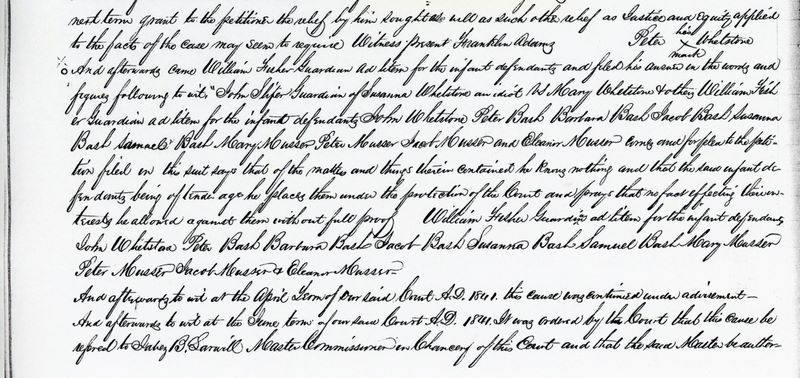 next term grant to the petitioner the relief by him sought as well as such other relief as Justice and Equity applied
to the facts of the case may seem to require Witness present Franklin Adams Peter his X mark Whetstone
And afterwards came William Fisher Guardian ad litem for the infant defendants and filed his answer in the words and
figures following to wit, "John Slifer Guardian of Susanna Whetstone an idiot vs Mary Whetstone & others William Fish
er Guardian ad litem for the infant defendants John Whetstone Peter Bash Barbara Bash Jacob Bash Susanna
Bash Samuel Bash Mary Musser Peter Musser Jacob Musser and Eleanor Musser comes and for plea to the peti-
tion filed in this suit says that of the matters and things therein contained he knows nothing and that the said infant de-
fendants being of tender age he places them under the protection of the Court and prays that no fact effecting their in-
terests be allowed against them without full proof William Fisher Guardian ad litem for the infant defendants
John Whetstone Peter Bash Barbara Bash Jacob Bash Susanna Bash Samuel Bash Mary Musser
Peter Musser Jacob Musser & Eleanor Musser
And afterwards to wit at the April Term of our said Court A.D. 1841. this cause was continued under advisement—
And afterwards to wit at the June term of our said Court A.D. 1841. It was ordered by the Court that this cause be
refered to Jabez B. Larwill Master Commissioner in Chancery of this Court and that the said Master be author-